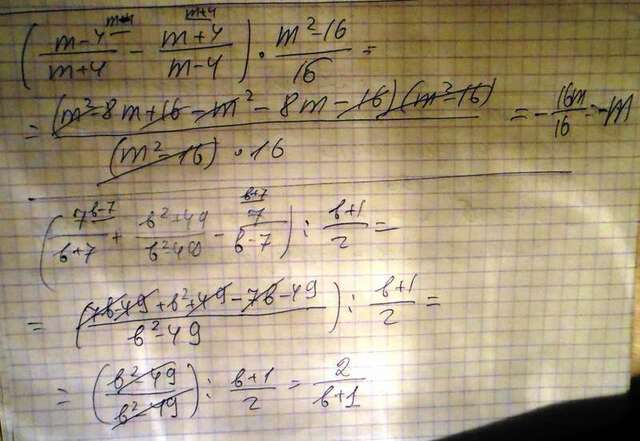 ( (m-4)/(m+4) - (m+4)/(m-4) ) · (m²-16)/16 =
= (m²-8m+16-m²-8m-16)(m²-16) / (m²-16)·16 = -16m/16 = -m
( 7/(b+7) + (b²+49)/(b²-49) - 7/(b-7) ) : (b+1)/2 =
= ( (7b-49+b²+49-7b-49) / (b²-49) ) : (b+1)/2 =
= ( (b²-49)/(b²-49) ) : (b+1)/2 = 2/(b+1)